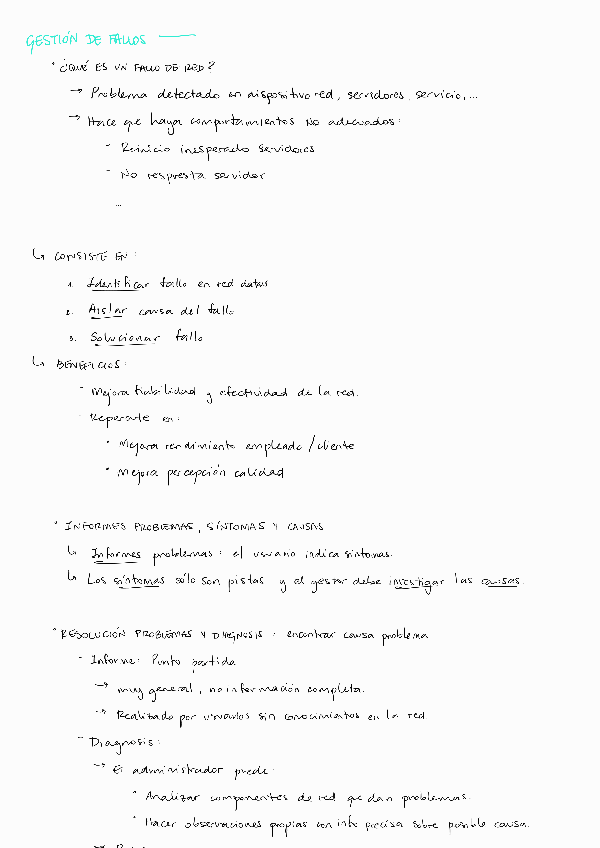 GESTIÓN DE FALLOS
¿QUÉ ES UN FALLO DE RED?
→ Problema detectado en dispositivo red, servidores, servicio,...
→ Hace que haya comportamientos No adecuados:
- Reinicio inesperado servidores
- No respuesta servidor
...
↳ CONSISTE EN:
1. Identificar fallo en red datos
2. Aislar causa del fallo
3. Solucionar fallo
↳ BENEFICIOS:
- Mejora fiabilidad y efectividad de la red.
- Repercute en:
• Mejora rendimiento empleado/cliente
• Mejora percepción calidad
• INFORMES PROBLEMAS, SÍNTOMAS Y CAUSAS
↳ Informes problemas: el usuario indica síntomas.
↳ Los síntomas sólo son pistas y el gestor debe investigar las causas.
• RESOLUCIÓN PROBLEMAS Y DIAGNOSIS: encontrar causa problema
- Informe: Punto partida
→ muy general, no información completa.
→ Realizado por usuarios sin conocimientos en la red
- Diagnosis:
→ El administrador puede:
• Analizar componentes de red que dan problemas.
• Hacer observaciones propias con info precisa sobre posible causa.